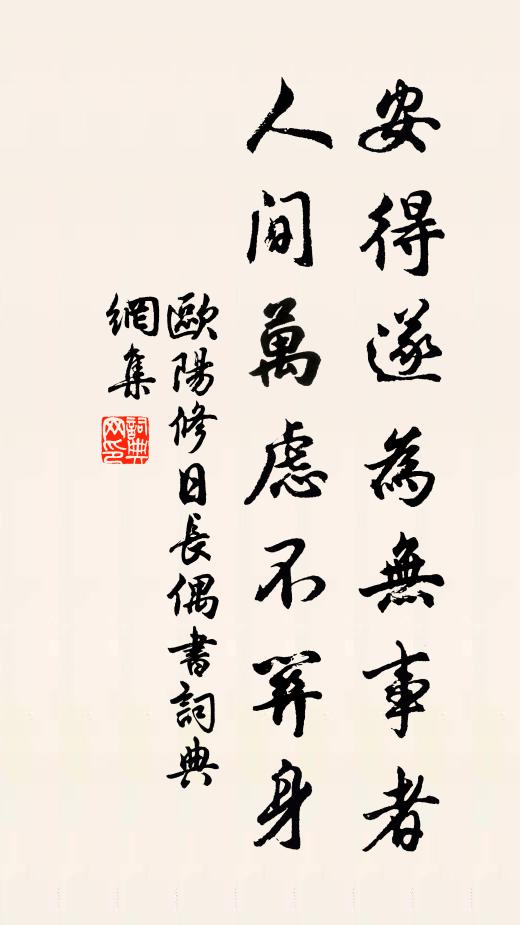 安得遂為無事者
人間萬慮不關身
歐陽修日長偶書詞典
網集
詞典
网印